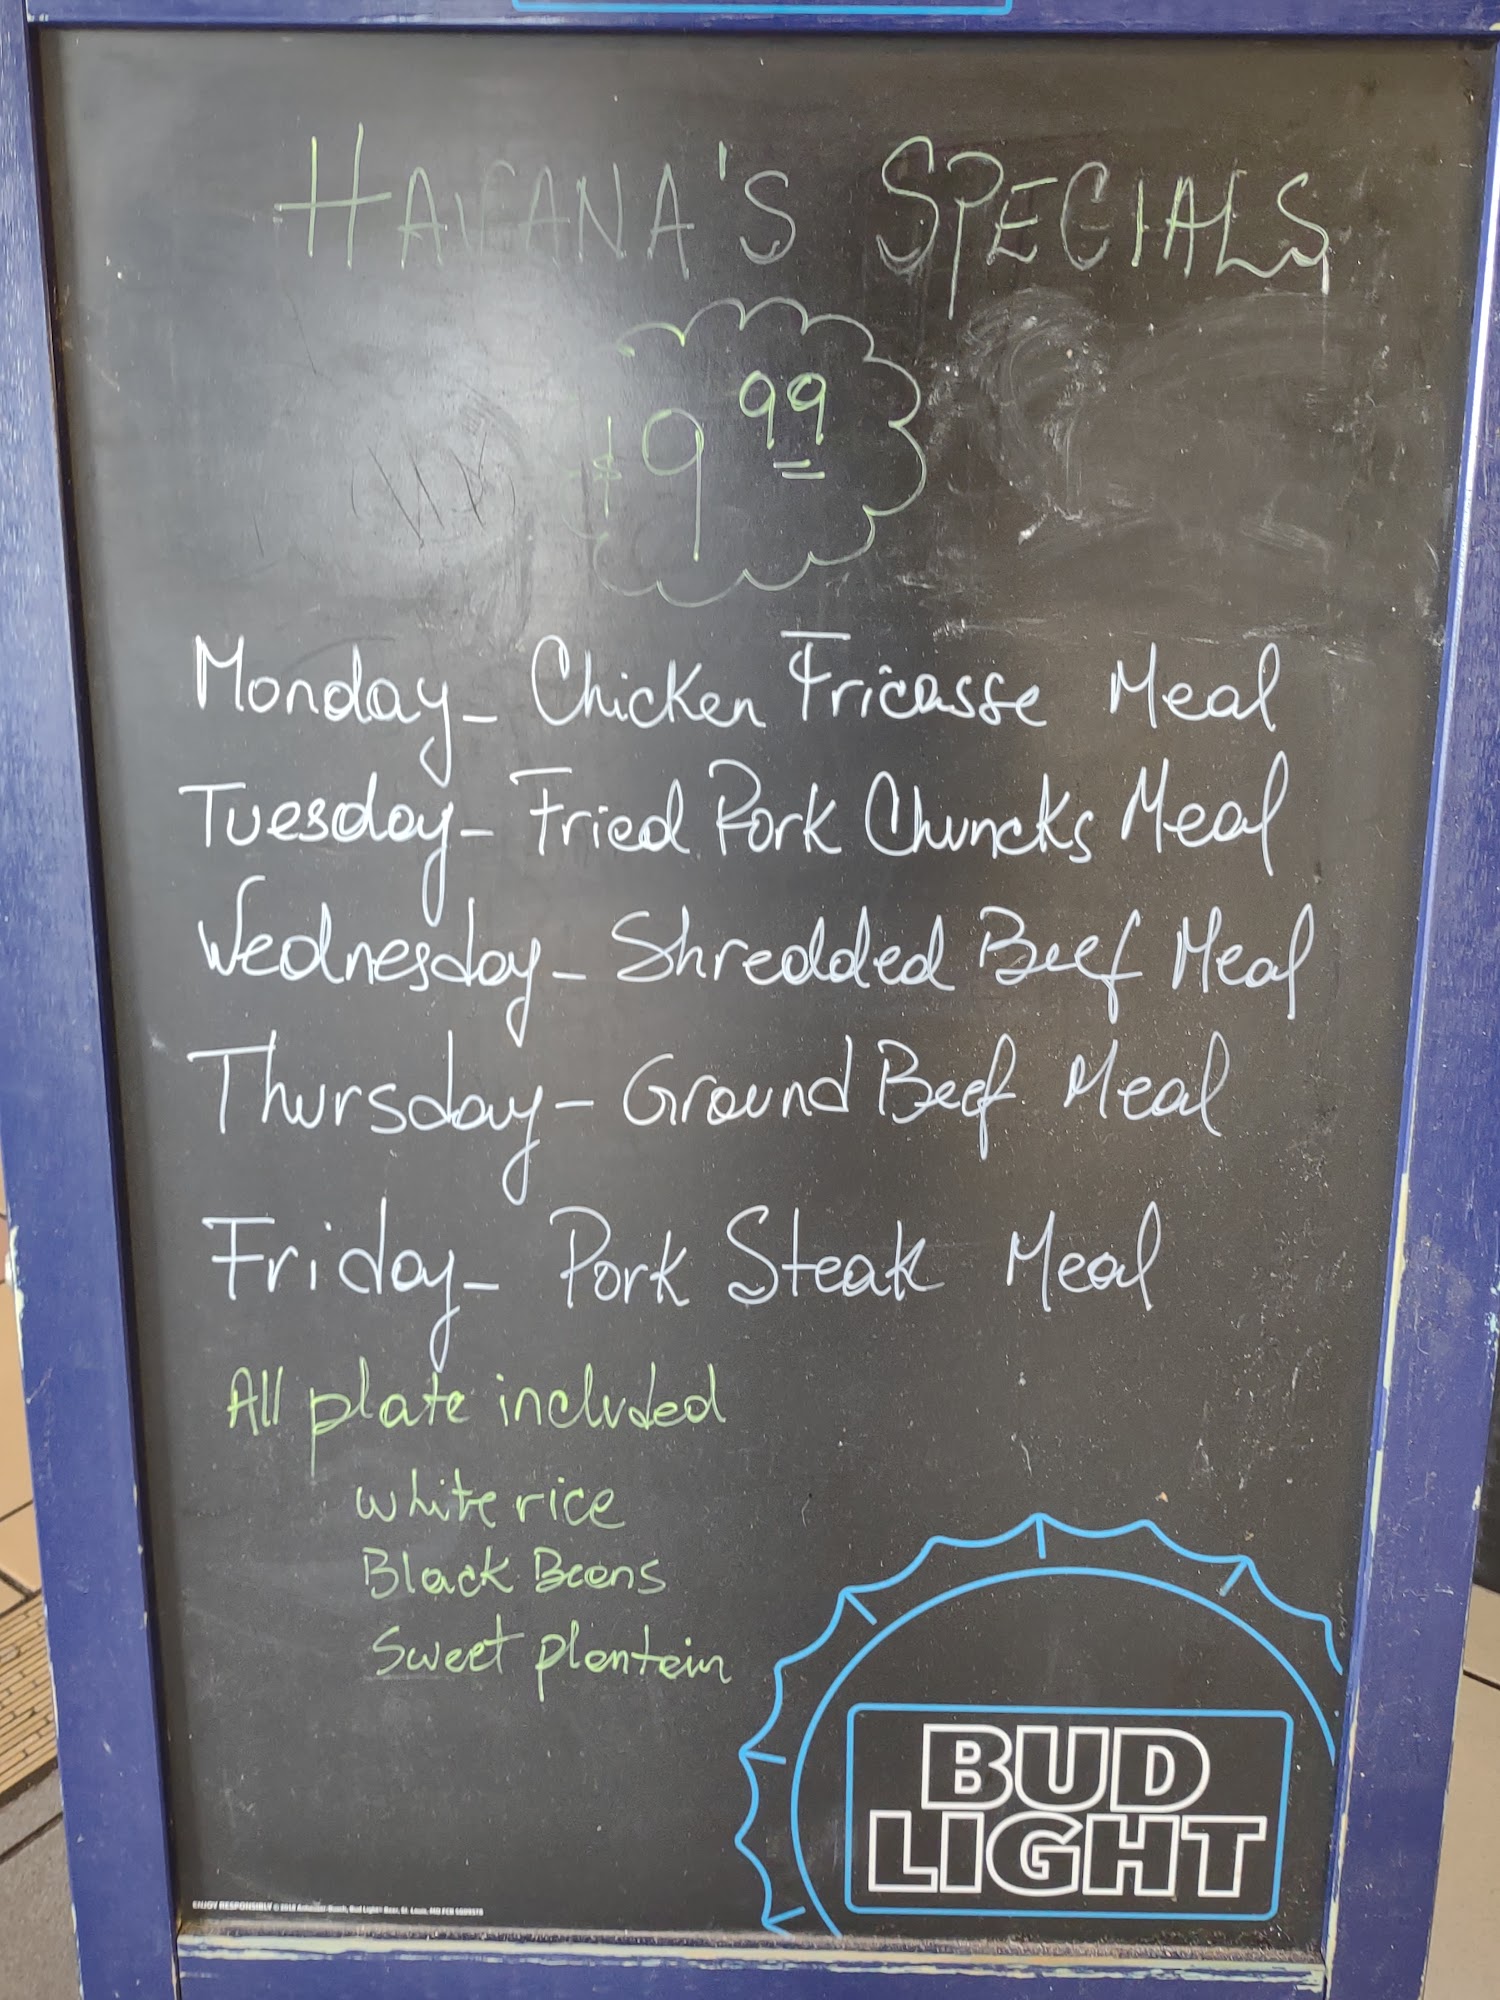 HAVANA'S SPECIALS
$9 99
Monday - Chicken Fricasse Meal
Tuesday - Fried Pork Chuncks Meal
Wednesday - Shredded Beef Meal
Thursday - Ground Beef Meal
Friday - Pork Steak Meal
All plate included
white rice
Black Beans
Sweet plantein
BUD
LIGHT
ENJOY RESPONSIBLY